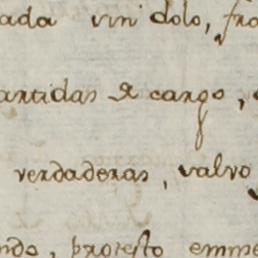 ada vin dolo, fra
artidas de cargo,
verdaderas, salvo
ndo, protesto enme